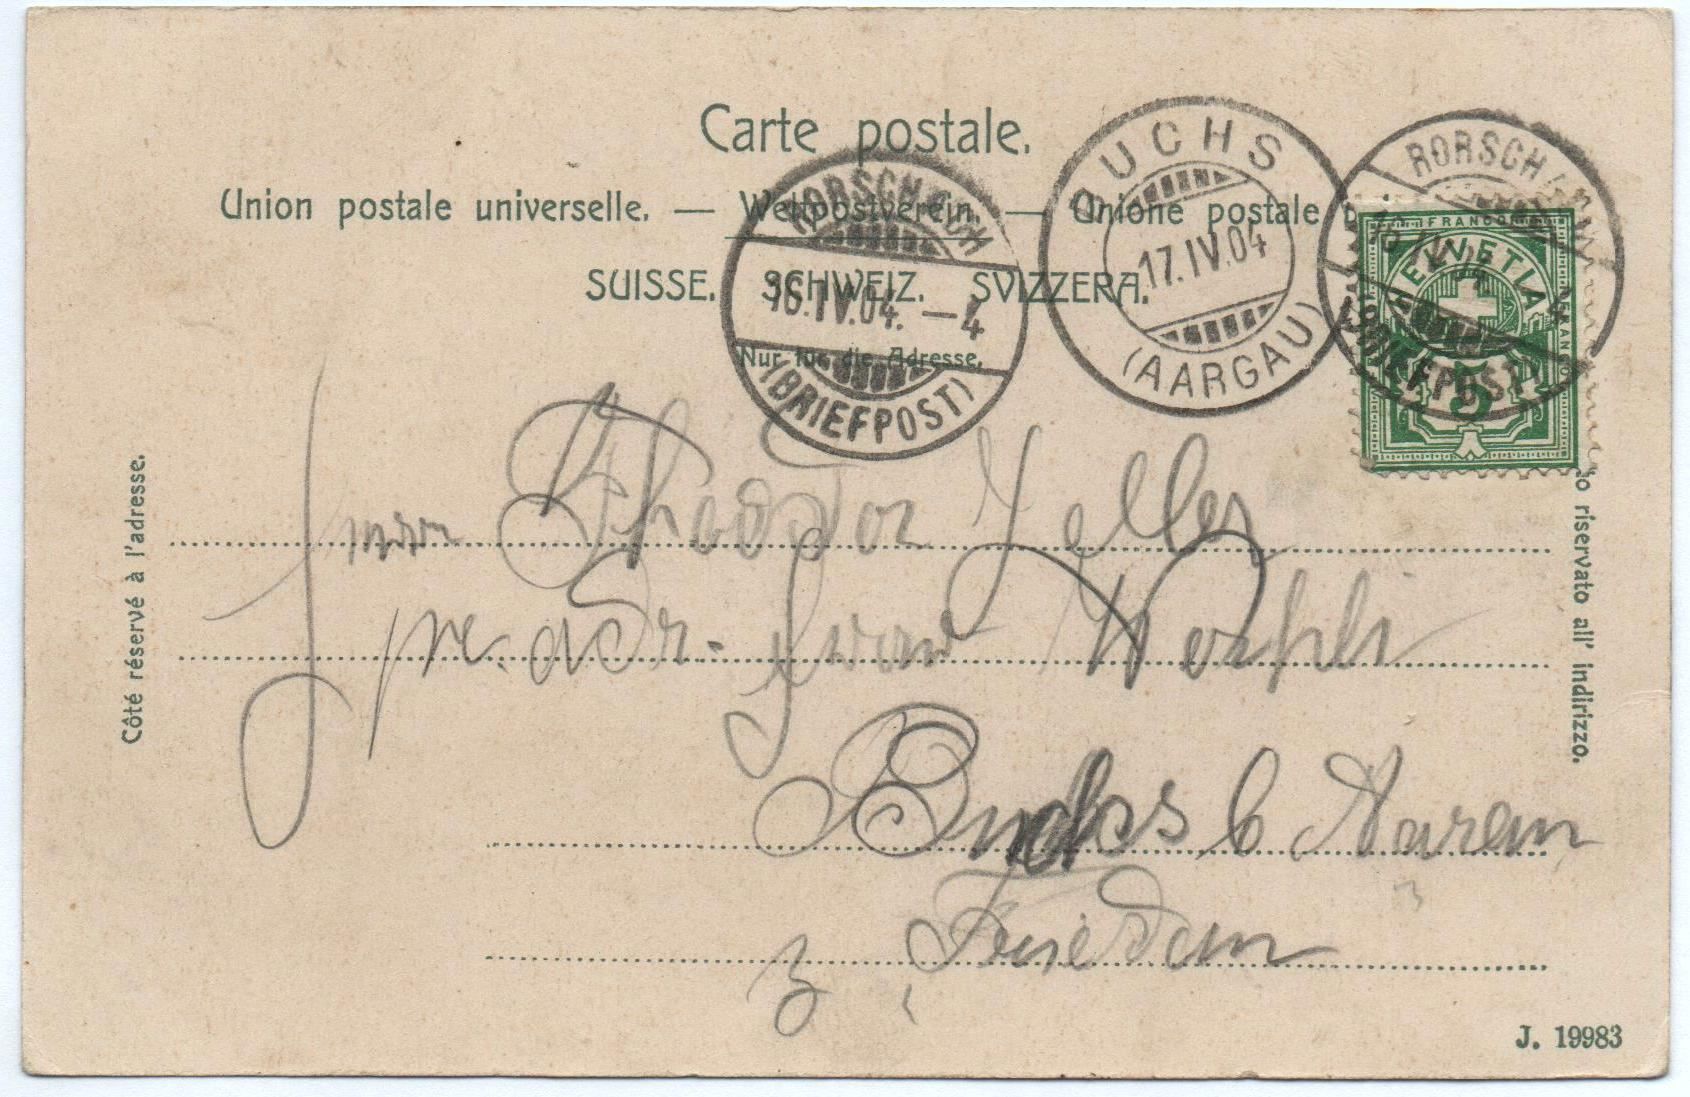 Carte postale.
Union postale universelle. — Weltpostverein. — Unione postale
SUISSE. SCHWEIZ. SVIZZERA.
Nur für die Adresse.
Côté réservé à l'adresse.
riservato all' indirizzo.
RORSCHACH
16.IV.04. –4
(BRIEFPOST)
BUCHS
17.IV.04
(AARGAU)
RORSCH
(BRIEFPOST)
FRANCO
HELVETIA
FRANCO
5
Theodor Zeller
pr. adr. Frau Wehrli
Buchs b Aarau
z. Frieden
J. 19983